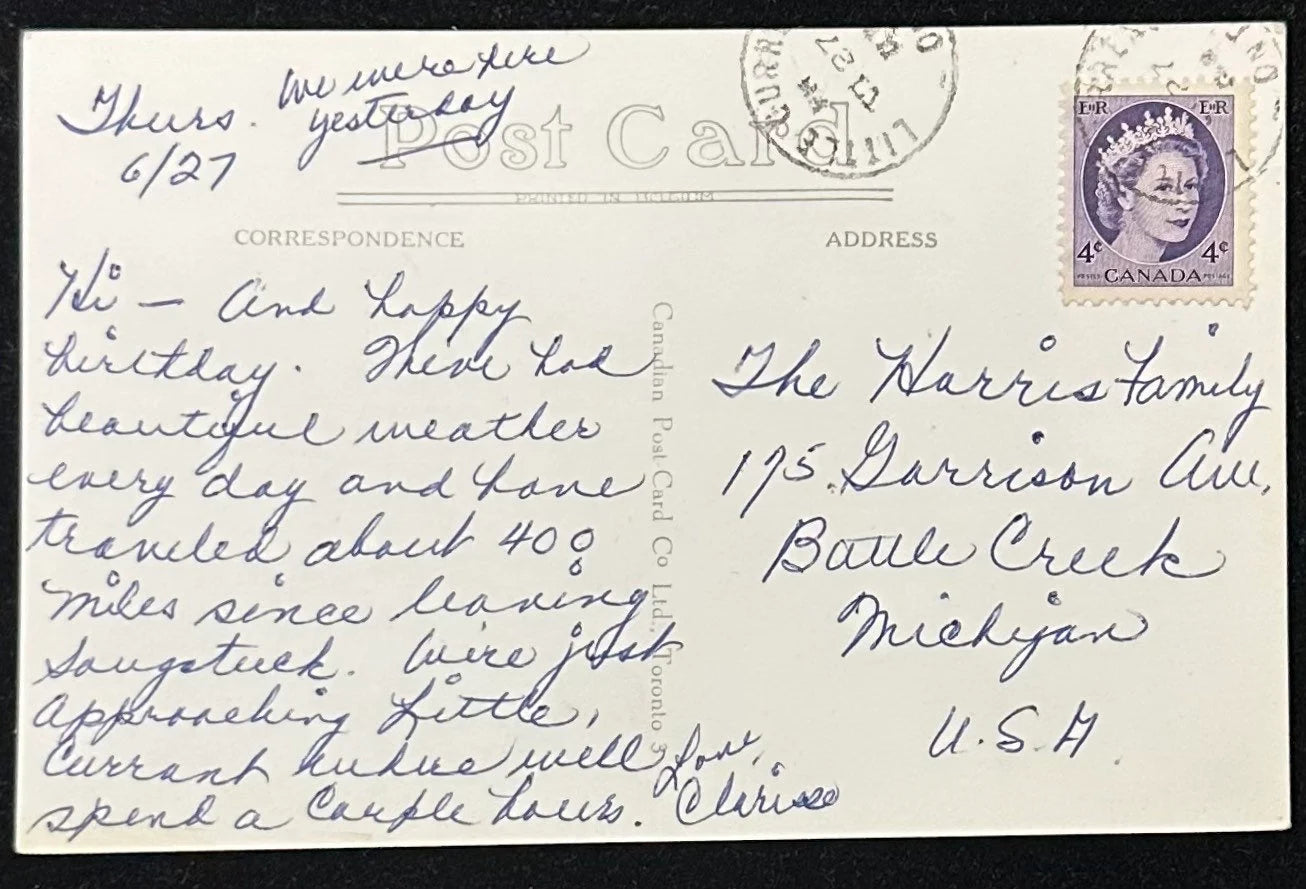 We were here
Thurs. yesterday
6/27
Post Card
PRINTED IN BELGIUM
CORRESPONDENCE
ADDRESS
LITTLE CURRE
27
ONT
E II R
E II R
4¢
4¢
POSTES CANADA POSTAGE
Hi — And happy
birthday. We've had
beautiful weather
every day and have
traveled about 400
miles since leaving
Saugatuck. We're just
approaching Little
Currant where we'll
spend a couple hours.
Love,
Clarisse
Canadian Post Card Co Ltd., Toronto 3
The Harris Family
175 Garrison Ave,
Battle Creek
Michigan
U.S.A